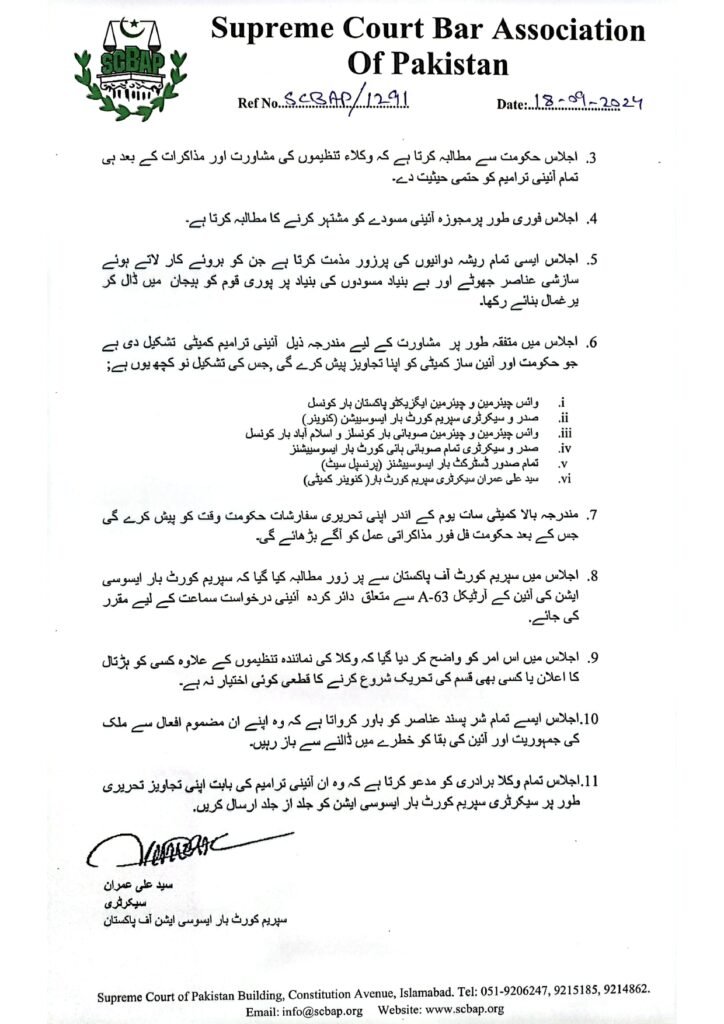 SCBAP
Supreme Court Bar Association
Of Pakistan
Ref No. SCBAP/1291 Date: 18-09-2024
3. اجلاس حکومت سے مطالبہ کرتا ہے کہ وکلاء تنظیموں کی مشاورت اور مذاکرات کے بعد ہی
تمام آئینی ترامیم کو حتمی حیثیت دے۔
4. اجلاس فوری طور پرمجوزہ آئینی مسودے کو مشتہر کرنے کا مطالبہ کرتا ہے۔
5. اجلاس ایسی تمام ریشہ دوانیوں کی پرزور مذمت کرتا ہے جن کو بروئے کار لاتے ہوئے
سازشی عناصر جھوٹے اور بے بنیاد مسودوں کی بنیاد پر پوری قوم کو ہیجان میں ڈال کر
یرغمال بنائے رکھا۔
6. اجلاس میں متفقہ طور پر مشاورت کے لیے مندرجہ ذیل آئینی ترامیم کمیٹی تشکیل دی ہے
جو حکومت اور آئین ساز کمیٹی کو اپنا تجاویز پیش کرے گی ,جس کی تشکیل نو کچھ یوں ہے;
i. وائس چیئرمین و چیئرمین ایگزیکٹو پاکستان بار کونسل
ii. صدر و سیکرٹری سپریم کورٹ بار ایسوسییشن (کنوینر)
iii. وائس چیئرمین و چیئرمین صوبائی بار کونسلز و اسلام آباد بار کونسل
iv. صدر و سیکرٹری تمام صوبائی ہائی کورٹ بار ایسوسییشنز
v. تمام صدور ڈسٹرکٹ بار ایسوسییشنز (پرنسپل سیٹ)
vi. سید علی عمران سیکرٹری سپریم کورٹ بار( کنوینر کمیٹی)
7. مندرجہ بالا کمیٹی سات یوم کے اندر اپنی تحریری سفارشات حکومت وقت کو پیش کرے گی
جس کے بعد حکومت فل فور مذاکراتی عمل کو آگے بڑھائے گی۔
8. اجلاس میں سپریم کورٹ آف پاکستان سے پر زور مطالبہ کیا گیا کہ سپریم کورٹ بار ایسوسی
ایشن کی آئین کے آرٹیکل 63-A سے متعلق دائر کردہ آئینی درخواست سماعت کے لیے مقرر
کی جائے۔
9. اجلاس میں اس امر کو واضح کر دیا گیا کہ وکلا کی نمائندہ تنظیموں کے علاوہ کسی کو ہڑتال
کا اعلان یا کسی بھی قسم کی تحریک شروع کرنے کا قطعی کوئی اختیار نہ ہے۔
10.اجلاس ایسے تمام شر پسند عناصر کو باور کرواتا ہے کہ وہ اپنے ان مضموم افعال سے ملک
کی جمہوریت اور آئین کی بقا کو خطرے میں ڈالنے سے باز رہیں۔
11.اجلاس تمام وکلا برادری کو مدعو کرتا ہے کہ وہ ان آئینی ترامیم کی بابت اپنی تجاویز تحریری
طور پر سیکرٹری سپریم کورٹ بار ایسوسی ایشن کو جلد از جلد ارسال کریں۔
سید علی عمران
سیکرٹری
سپریم کورٹ بار ایسوسی ایشن آف پاکستان
Supreme Court of Pakistan Building, Constitution Avenue, Islamabad. Tel: 051-9206247, 9215185, 9214862.
Email: info@scbap.org Website: www.scbap.org